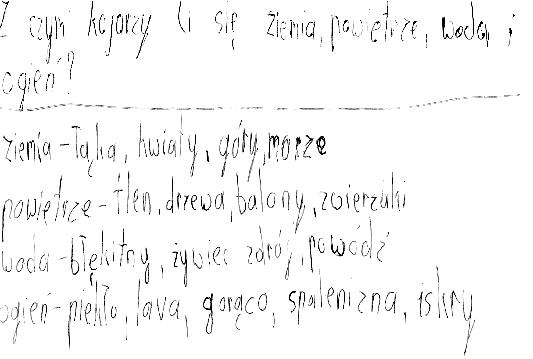 Z czym kojarzy Ci się ziemia, powietrze, woda, i
ogień?
ziemia - łąka, kwiaty, góry, morze
powietrze - tlen, drzewa, balony, zwierzaki
woda - błękitny, żywiec zdrój, powódź
ogień - piekło, lava, gorąco, spalenizna, iskry